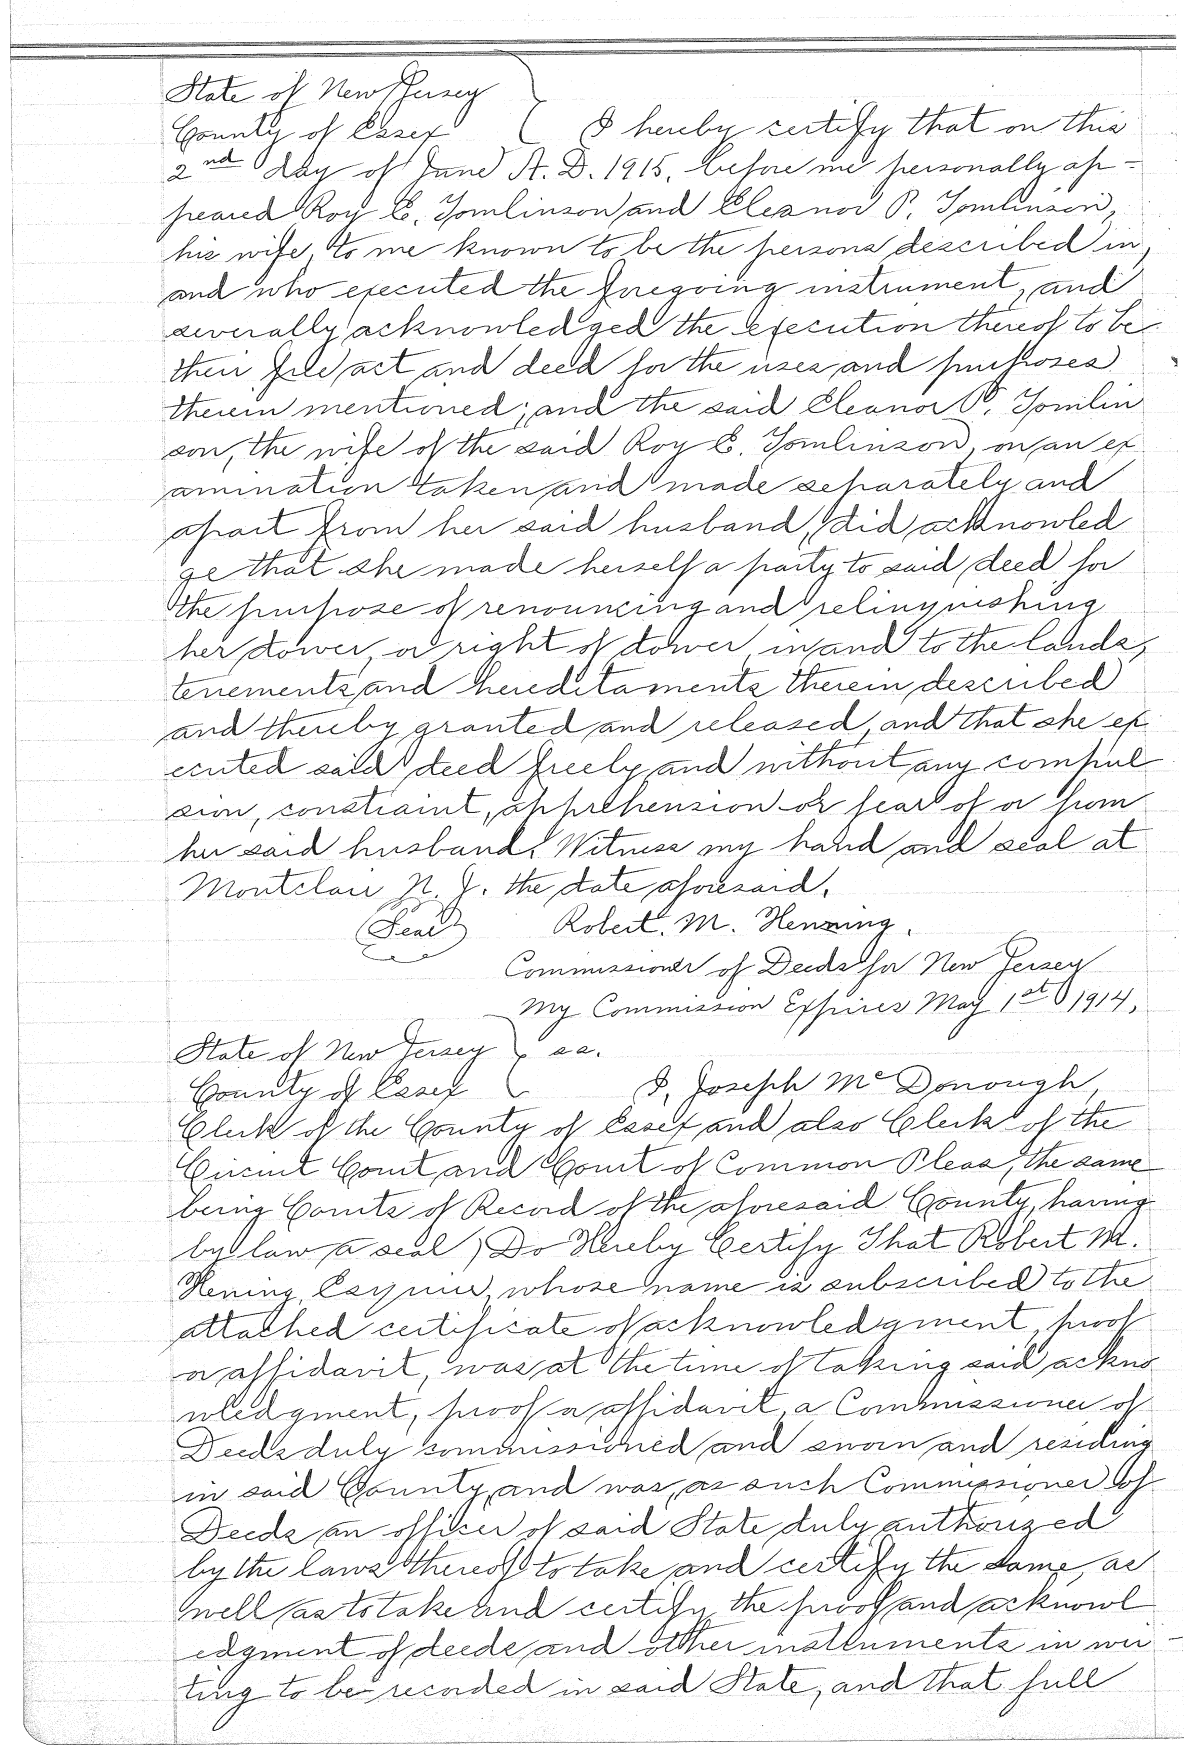 State of New Jersey
County of Essex I hereby certify that on this
2nd day of June A. D. 1915, before me personally ap-
peared Roy E. Tomlinson and Eleanor P. Tomlinson,
his wife, to me known to be the persons described in,
and who executed the foregoing instrument, and
severally acknowledged the execution thereof to be
their free act and deed for the uses and purposes
therein mentioned; and the said Eleanor P. Tomlin
son, the wife of the said Roy E. Tomlinson, on an ex
amination taken and made separately and
apart from her said husband, did acknowled
ge that she made herself a party to said deed for
the purpose of renouncing and relinquishing
her dower, or right of dower, in and to the lands,
tenements and hereditaments therein described
and thereby granted and released, and that she ex
ecuted said deed freely and without any compul
sion, constraint, apprehension or fear of or from
her said husband. Witness my hand and seal at
Montclair N. J. the date aforesaid.
(Seal) Robert. M. Henning.
Commissioner of Deeds for New Jersey
My Commission Expires May 1st 1914.
State of New Jersey ss.
County of Essex I, Joseph McDonough,
Clerk of the County of Essex and also Clerk of the
Circuit Court and Court of Common Pleas, the same
being Courts of Record of the aforesaid County, having
by law a seal) Do Hereby Certify That Robert M.
Hening, Esquire, whose name is subscribed to the
attached certificate of acknowledgment, proof
or affidavit, was at the time of taking said ackno
wledgment, proof or affidavit, a Commissioner of
Deeds duly commissioned and sworn and residing
in said County, and was, as such Commissioner of
Deeds an officer of said State duly authorized
by the laws thereof to take and certify the same, as
well as to take and certify the proof and acknowl
edgment of deeds and other instruments in wri-
ting to be recorded in said State, and that full